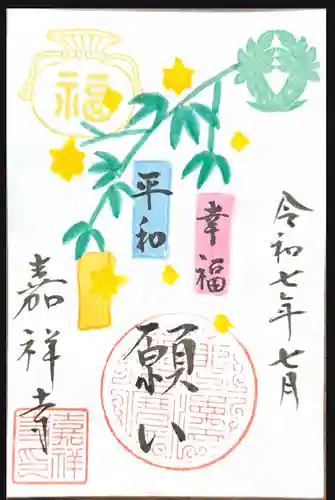 令和七年七月
福
平和
幸福
願い
嘉祥寺
嘉祥